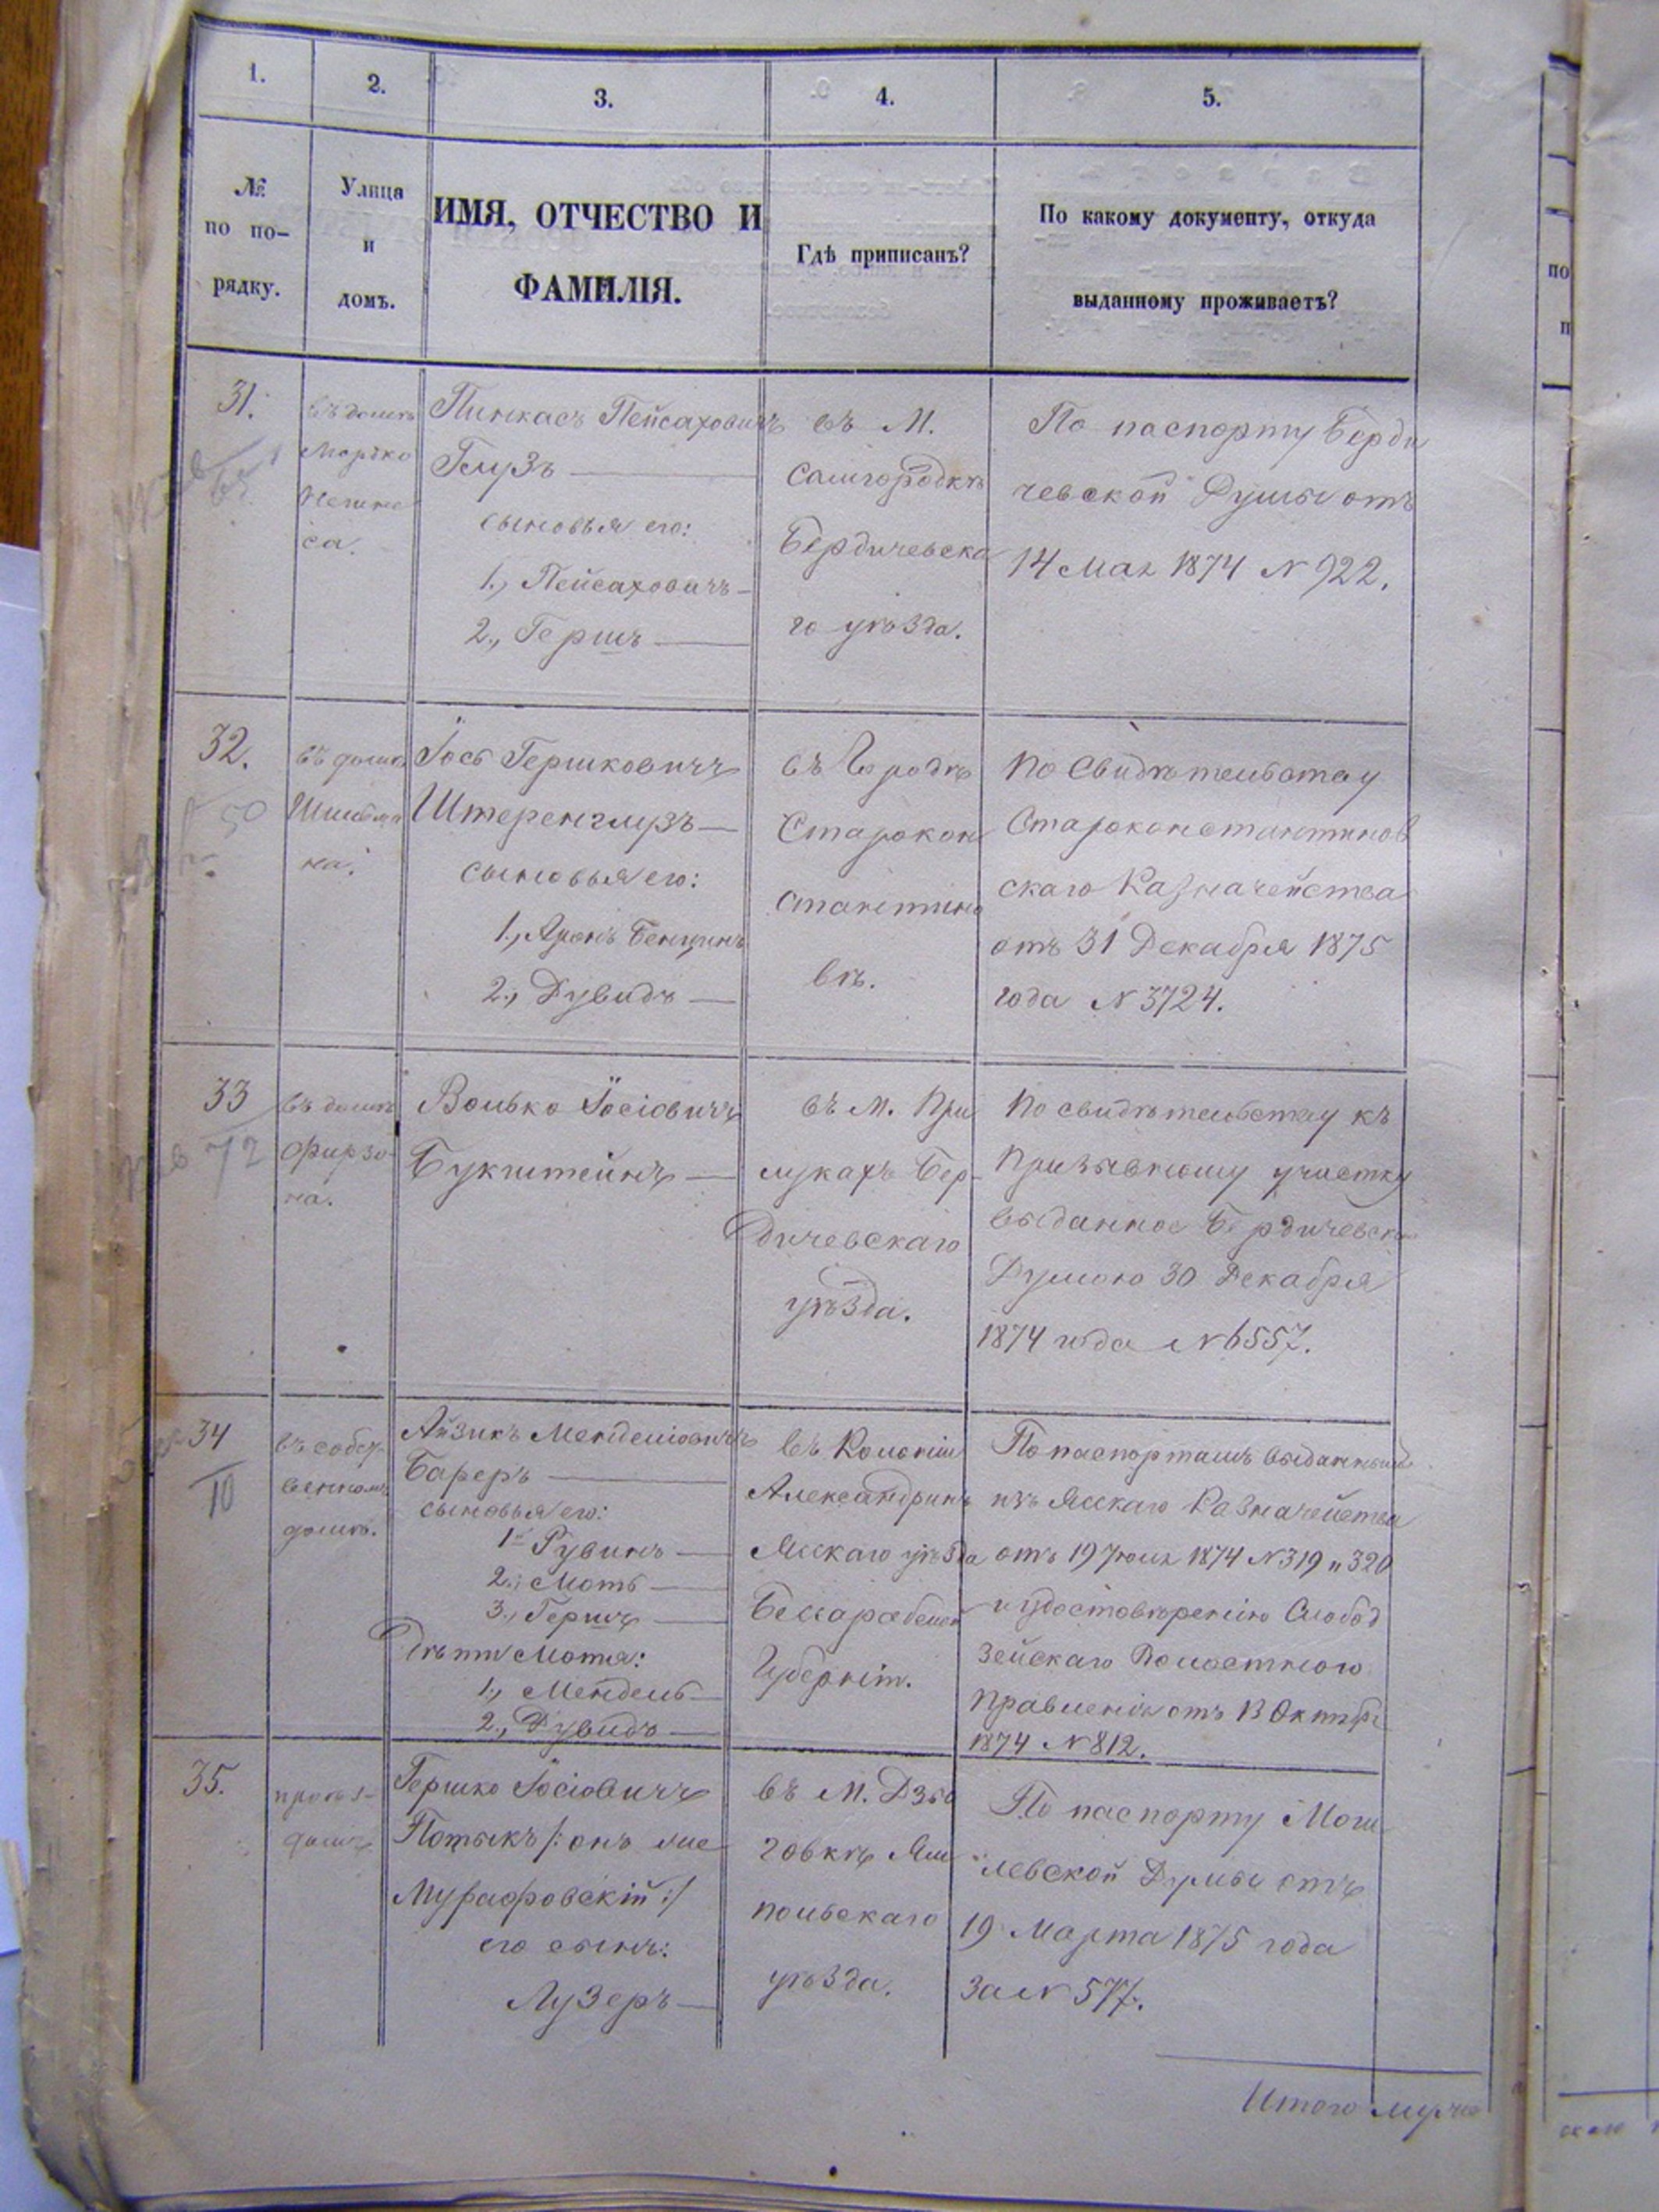 1.
2.
3.
4.
5.
№
по по-
рядку.
Улица
и
домъ.
ИМЯ, ОТЧЕСТВО И
ФАМИЛІЯ.
Гдѣ приписанъ?
По какому документу, откуда
выданному проживаетъ?
31.
въ домѣ
Мордко
Пинкасъ Пейсаховичъ
Глузъ
сыновья его:
1., Пейсаховичъ
2., Гершъ
въ М.
Самгородкѣ
Бердичевска
го уѣзда.
По паспорту Берди
чевской Думы отъ
14 Мая 1874 N 922.
32.
50
въ домѣ
Шильма
на.
Іось Гершковичъ
Штеренглузъ
сыновья его:
1., Аронъ Бенционъ
2., Дувидъ
въ Городѣ
Старокон
стантино
вѣ.
По Свидѣтельству
Староконстантинов
скаго Казначейства
отъ 31 Декабря 1875
года N 3724.
33
72
въ домѣ
Фирзо-
на.
Волько Іосіовичъ
Букштейнъ
въ М. При
лукахъ Бер-
дичевскаго
уѣзда.
По свидѣтельству къ
призывному участку
выданное Бердичевскою
Думою 30 Декабря
1874 года N 6557.
34
10
въ собст
венномъ
домѣ.
Айзикъ Менделіовичъ
Бареръ
сыновья его:
1., Рувинъ
2., Моть
3., Гершъ
Дѣти Мотя:
1., Мендель
2., Дувидъ
въ Колоніи
Александринѣ
Ясскаго уѣзда
Бессарабской
Губерніи.
По паспортамъ выданнымъ
изъ Ясскаго Казначейства
отъ 19 Іюля 1874 N 319 и 320
и удостовѣренію Слобод
зейскаго Волостного
Правленія отъ 13 Октября
1874 N 812.
35.
домъ
Гершко Іосіовичъ
Потыкъ /: онъ же
Мурафовскій :/
его сынъ:
Лузеръ
въ М. Дзы
говкѣ Ям
польскаго
уѣзда.
По паспорту Моги
левской Думы отъ
19 Марта 1875 года
за N 577.
Итого
по
п